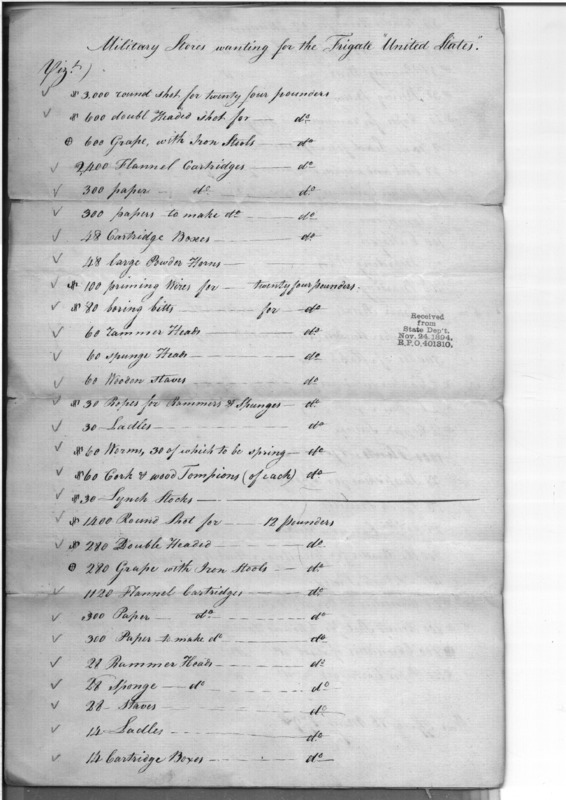 Military Stores wanting for the Frigate "United States".
Vizt.)
3,000 round shot for twenty four pounders
600 doubl Headed shot for — do
600 Grape, with Iron Stools — do
2,400 Flannel Cartridges — do
300 paper — do. do
300 papers to make do — do
48 Cartridge Boxes — do
48 large Powder Horns —
100 priming Wires for — twenty four pounders.
80 boring bitts — for do
60 rammer Heads — do
60 spunge Heads — do
60 Wooden staves do
30 Ropes for Rammers & Spunges — do
30 Ladles — do
60 Worms, 30 of which to be spring — do
60 Cork & wood Tompions (of each) do
30 Lynch Stocks —
1400 Round Shot for — 12 pounders
280 Double Headed — do
280 Grape with Iron Stools — do
1120 Flannel Cartridges — do
300 Paper — do. do
300 Paper to make do — do
28 Rammer Heads — do
28 Sponge — do do
28 Staves — do
14 Ladles — do
14 Cartridge Boxes — do
Received
from
State Dep't.
Nov. 24, 1894.
R.P.O. 401310.